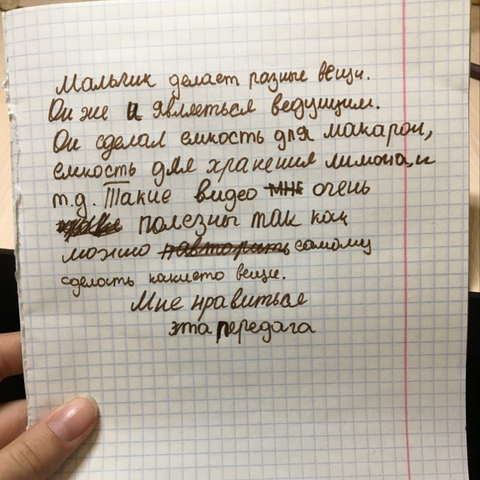 Мальчик делает разные вещи.
Он же и являеться ведущим.
Он сделал емкость для макарон,
емкость для хранения лимона, и
т.д. Такие видео мне очень
полезны так как
можно повторить самому
сделать какието вещи.
Мне нравиться
эта передача